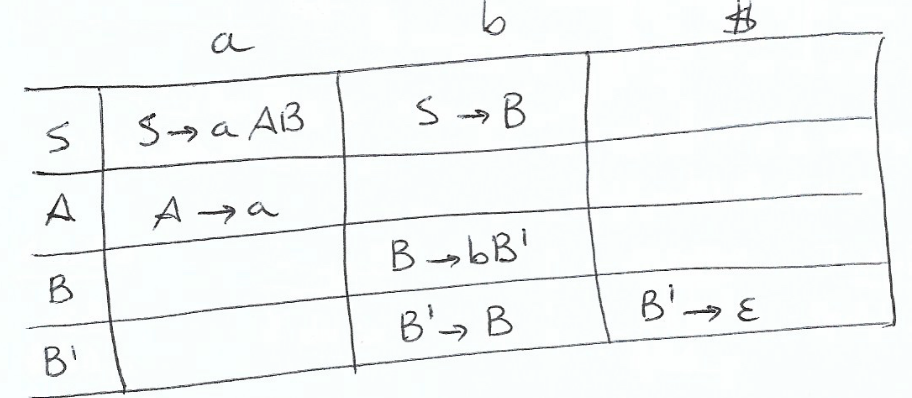 a b $
S S → a AB S → B
A A → a
B B → bB'
B' B' → B B' → ε